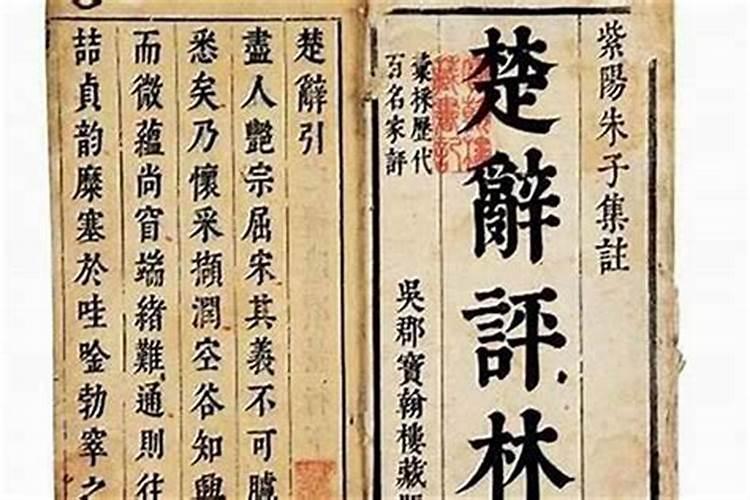 紫陽朱子集註
楚辭評林
彙採歷代
百名家評
吳郡寶翰樓藏
楚辭引
盡人豔宗屈宋其義不可臆
悉矣乃懷采擷潤空谷知興
而微蘊尚窅端緒難通則往
詰貞韵糜塞於哇唫勃窣之